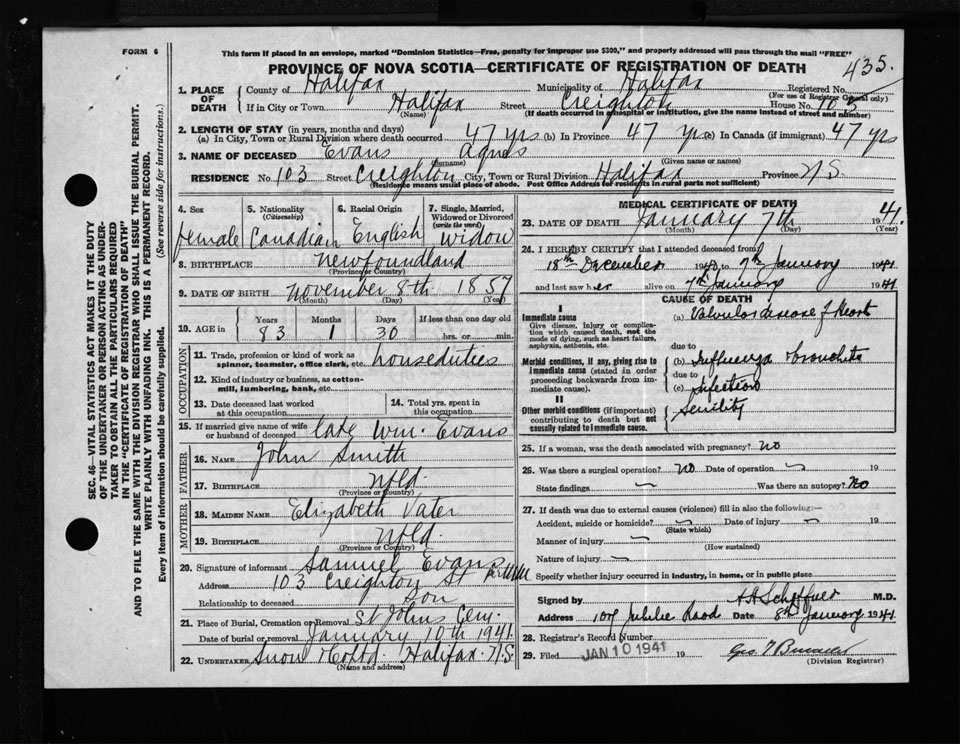 FORM 6
This form if placed in an envelope, marked "Dominion Statistics—Free, penalty for improper use $300," and properly addressed will pass through the mail "FREE"
PROVINCE OF NOVA SCOTIA—CERTIFICATE OF REGISTRATION OF DEATH
435.
1. PLACE OF DEATH
County of Halifax
Municipality of Halifax
Registered No.
(For use of Registrar General only)
If in City or Town Halifax Street Creighton House No. 103
(Name)
(If death occurred in a hospital or institution, give the name instead of street and number)
2. LENGTH OF STAY (in years, months and days)
(a) In City, Town or Rural Division where death occurred 47 yrs (b) In Province 47 yrs (c) In Canada (if immigrant) 47 yrs
3. NAME OF DECEASED Evans Agnes
(Surname) (Given name or names)
RESIDENCE No. 103 Street Creighton City, Town or Rural Division Halifax Province N.S.
(Residence means usual place of abode. Post Office Address for residents in rural parts not sufficient)
4. Sex
female
5. Nationality (Citizenship)
Canadian
6. Racial Origin
English
7. Single, Married, Widowed or Divorced (write the word)
Widow
8. BIRTHPLACE Newfoundland
(Province or Country)
9. DATE OF BIRTH November 8th 1857
(Month) (Day) (Year)
10. AGE in
Years Months Days If less than one day old
83 1 30 hrs. or min.
OCCUPATION
11. Trade, profession or kind of work as spinner, teamster, office clerk, etc. house duties
12. Kind of industry or business, as cotton-mill, lumbering, bank, etc.
13. Date deceased last worked at this occupation
14. Total yrs. spent in this occupation
15. If married give name of wife or husband of deceased late Wm. Evans
FATHER
16. NAME John Smith
17. BIRTHPLACE Nfld.
(Province or Country)
MOTHER
18. MAIDEN NAME Elizabeth Vater
19. BIRTHPLACE Nfld.
(Province or Country)
20. Signature of informant Samuel Evans
Address 103 Creighton St
Relationship to deceased Son
21. Place of Burial, Cremation or Removal St Johns Cem.
Date of burial or removal January 10th 1941.
22. UNDERTAKER Snow & Co Ltd. Halifax. N.S.
(Name and address)
MEDICAL CERTIFICATE OF DEATH
23. DATE OF DEATH January 7th 1941.
(Month) (Day) (Year)
24. I HEREBY CERTIFY that I attended deceased from
18th December 1940 to 7th January 1941
and last saw her alive on 7th January 1941
CAUSE OF DEATH
Immediate cause
Give disease, injury or complication which caused death, not the mode of dying, such as heart failure, asphyxia, asthenia, etc.
(a) Valvular disease of Heart
due to
Morbid conditions, if any, giving rise to immediate cause (stated in order proceeding backwards from immediate cause).
(b) Influenza bronchitis
due to
(c) infection
II
Other morbid conditions (if important) contributing to death but not causally related to immediate cause.
Senility
25. If a woman, was the death associated with pregnancy? no
26. Was there a surgical operation? no Date of operation 19
State findings Was there an autopsy? no
27. If death was due to external causes (violence) fill in also the following:—
Accident, suicide or homicide? Date of injury 19
(State which)
Manner of injury
(How sustained)
Nature of injury
Specify whether injury occurred in industry, in home, or in public place
Signed by M.D.
Address 107 Jubilee Road Date 8th January 1941
28. Registrar's Record Number
29. Filed JAN 10 1941 19
(Division Registrar)
SEC. 46—VITAL STATISTICS ACT MAKES IT THE DUTY
OF THE UNDERTAKER OR PERSON ACTING AS UNDER-
TAKER TO OBTAIN ALL THE PARTICULARS REQUIRED
IN THE "CERTIFICATE OF REGISTRATION OF DEATH"
AND TO FILE THE SAME WITH THE DIVISION REGISTRAR WHO SHALL ISSUE THE BURIAL PERMIT.
WRITE PLAINLY WITH UNFADING INK. THIS IS A PERMANENT RECORD.
Every item of information should be carefully supplied. (See reverse side for instructions.)